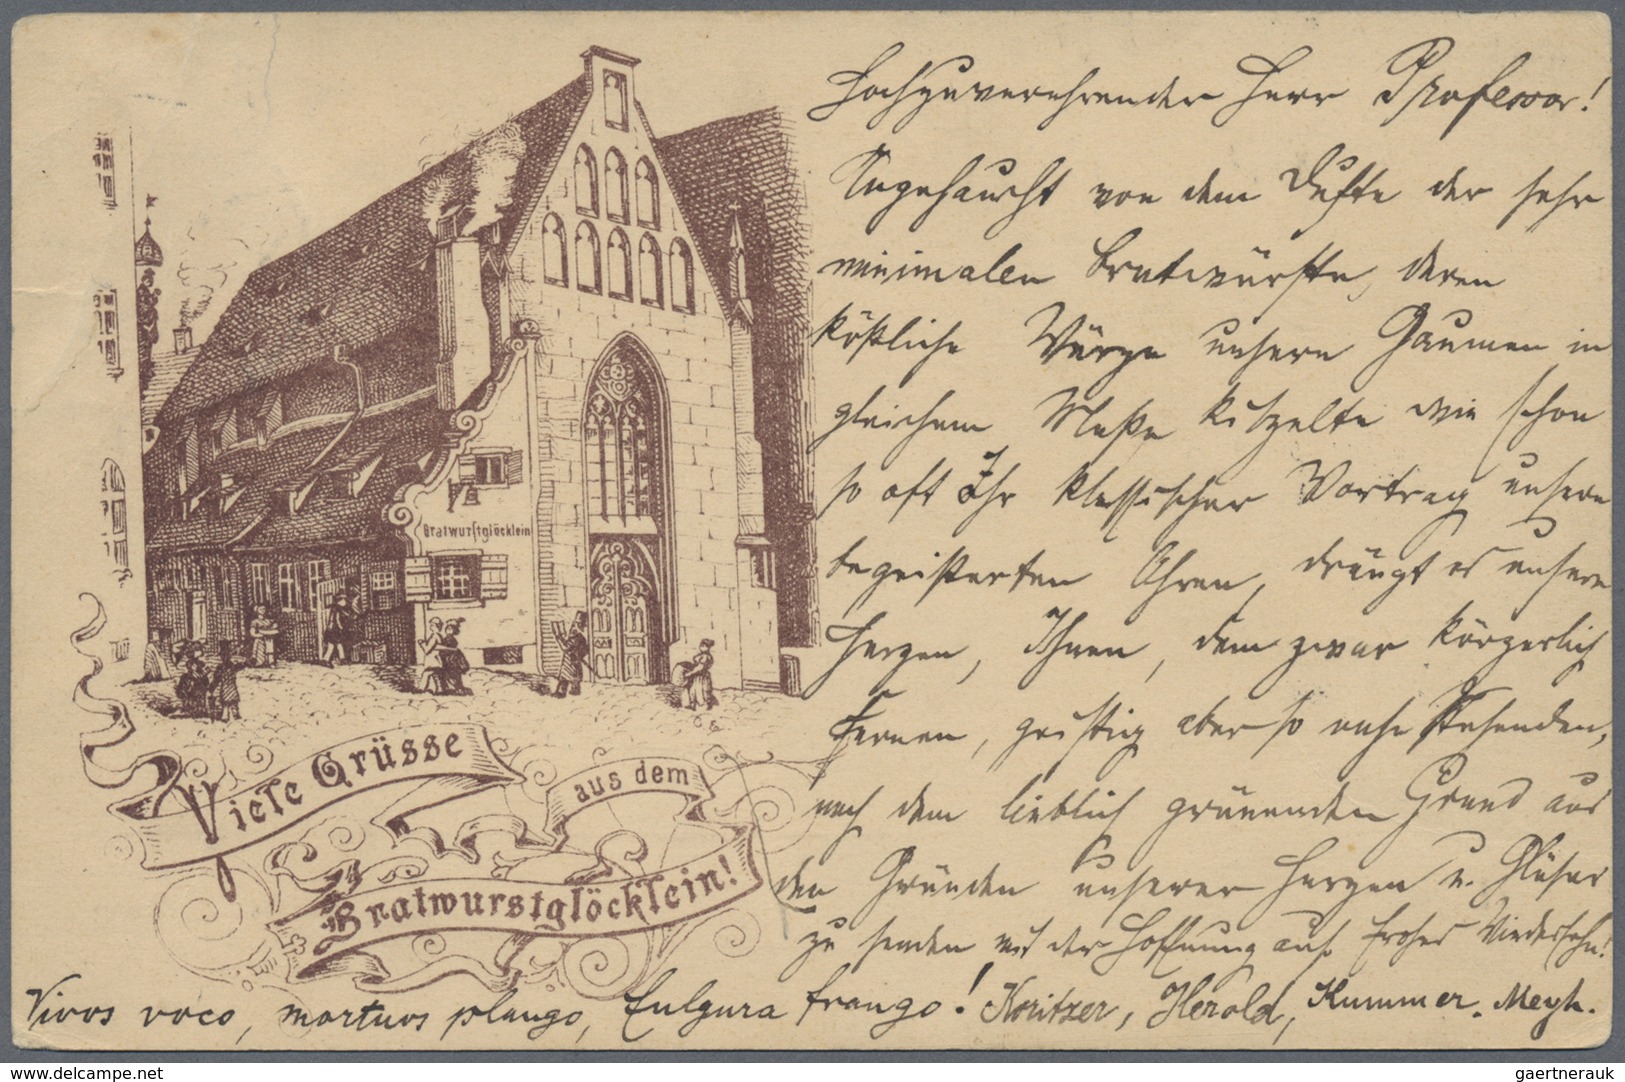 Hochzuverehrender Herr Professor!
Angehaucht von dem Dufte der sehr
minimalen Bratwürste, deren
köstliche Würze unsern Gaumen in
gleichem Maße kitzelte wie schon
so oft Ihr klassischer Vortrag unsere
begeisterten Ohren, drängt es unsere
Herzen, Ihnen, dem zwar körperlich
Fernen, geistig aber so nahe Stehenden,
nach dem lieblich grünenden Gmund aus
den Gründen unserer Herzen u. Gläser
zu senden mit der Hoffnung auf frohes Wiedersehn!
Vivos voco, mortuos plango, fulgura frango! Koritzer, Herold, Kummer.
Bratwurstglöcklein
Viele Grüsse
aus dem
Bratwurstglöcklein!
www.delcampe.net
gaertnerauk